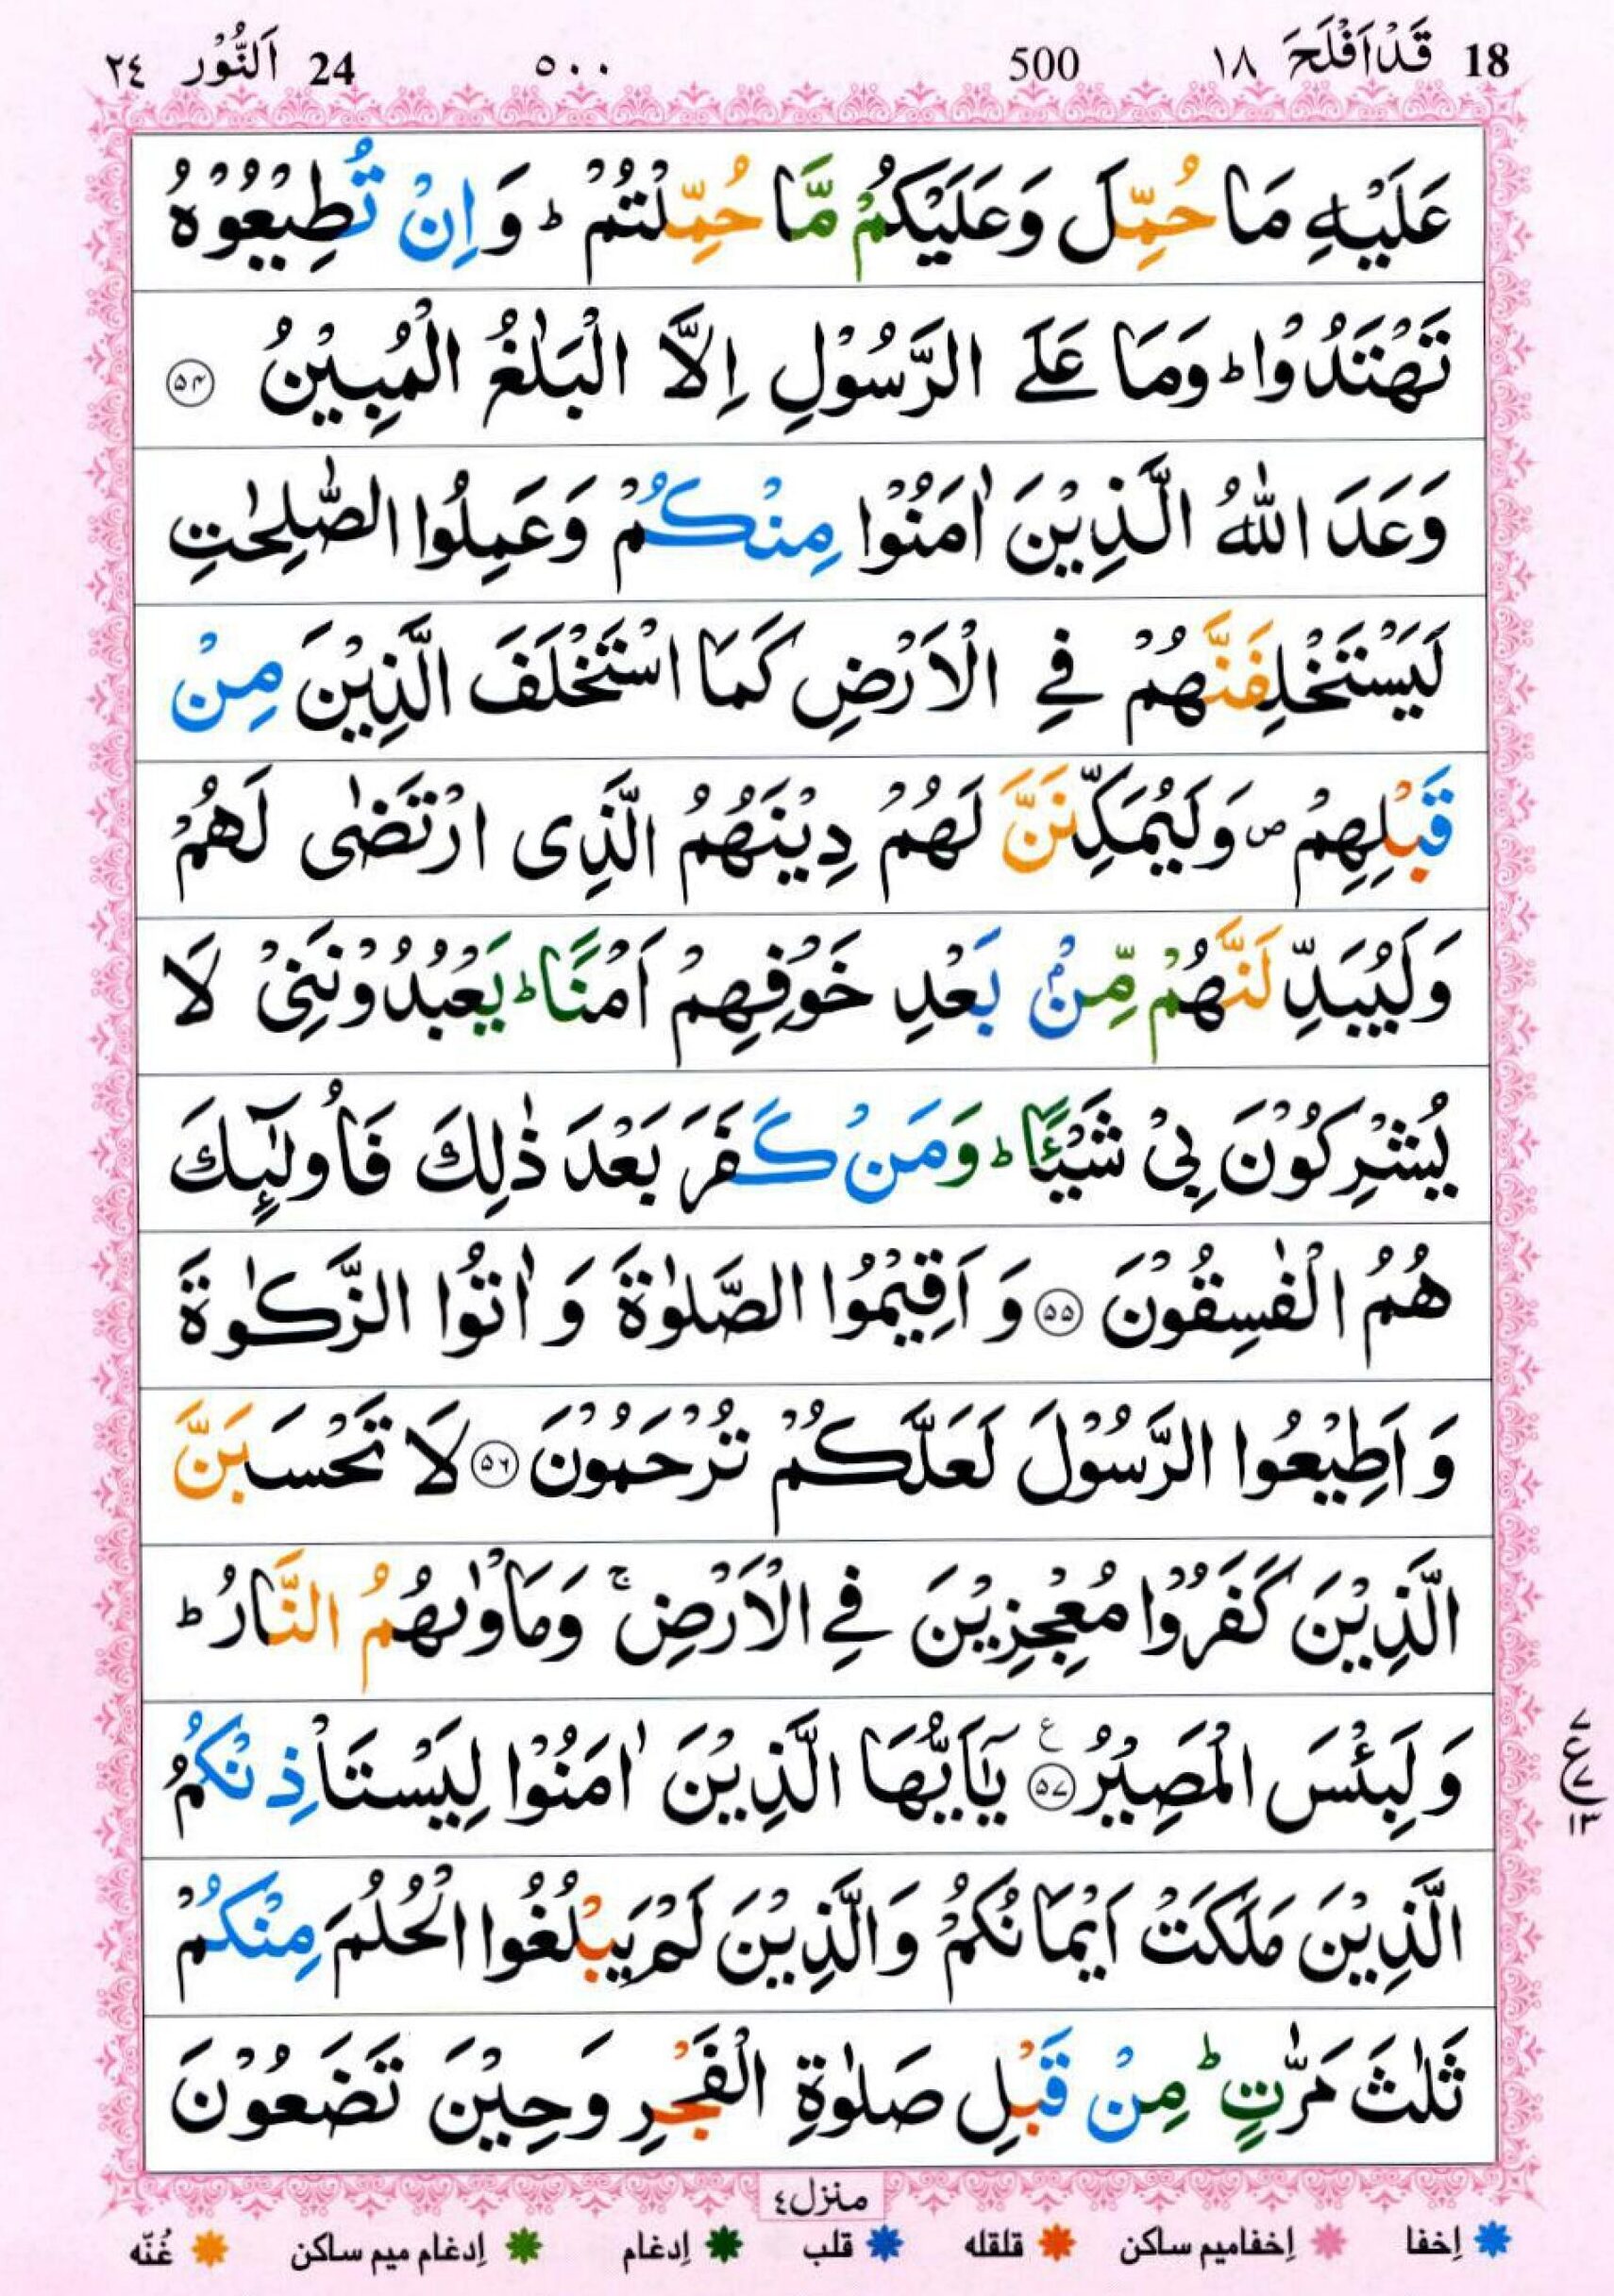 18 قَدْ اَفْلَحَ ١٨ 500 ٥٠٠ 24 اَلنُّوْر ٢٤
عَلَيْهِ مَا حُمِّلَ وَعَلَيْكُمْ مَّا حُمِّلْتُمْ ؕ وَ اِنْ تُطِيْعُوْهُ
تَهْتَدُوْا ؕ وَمَا عَلَي الرَّسُوْلِ اِلَّا الْبَلٰغُ الْمُبِيْنُ ۵۴
وَعَدَ اللّٰهُ الَّذِيْنَ اٰمَنُوْا مِنْكُمْ وَعَمِلُوا الصّٰلِحٰتِ
لَيَسْتَخْلِفَنَّهُمْ فِي الْاَرْضِ كَمَا اسْتَخْلَفَ الَّذِيْنَ مِنْ
قَبْلِهِمْ ص وَلَيُمَكِّنَنَّ لَهُمْ دِيْنَهُمُ الَّذِى ارْتَضٰى لَهُمْ
وَلَيُبَدِّلَنَّهُمْ مِّنْۢ بَعْدِ خَوْفِهِمْ اَمْنًا ؕ يَعْبُدُوْنَنِيْ لَا
يُشْرِكُوْنَ بِيْ شَيْـًٔا ؕ وَمَنْ كَفَرَ بَعْدَ ذٰلِكَ فَاُولٰٓئِكَ
هُمُ الْفٰسِقُوْنَ ۵۵ وَ اَقِيْمُوا الصَّلٰوةَ وَ اٰتُوا الزَّكٰوةَ
وَ اَطِيْعُوا الرَّسُوْلَ لَعَلَّكُمْ تُرْحَمُوْنَ ۵۶ لَا تَحْسَبَنَّ
الَّذِيْنَ كَفَرُوْا مُعْجِزِيْنَ فِي الْاَرْضِ ۚ وَمَاْوٰىهُمُ النَّارُ ؕ
وَ لَبِئْسَ الْمَصِيْرُ ۵۷ ع يٰٓاَيُّهَا الَّذِيْنَ اٰمَنُوْا لِيَسْتَاْذِنْكُمُ
الَّذِيْنَ مَلَكَتْ اَيْمَانُكُمْ وَالَّذِيْنَ لَمْ يَبْلُغُوا الْحُلُمَ مِنْكُمْ
ثَلٰثَ مَرّٰتٍ ؕ مِنْ قَبْلِ صَلٰوةِ الْفَجْرِ وَحِيْنَ تَضَعُوْنَ
٧ ع ٧ ١٣
منزل ٤
إخفا إخفا ميم ساكن قلقله قلب إدغام إدغام ميم ساكن غُنّه